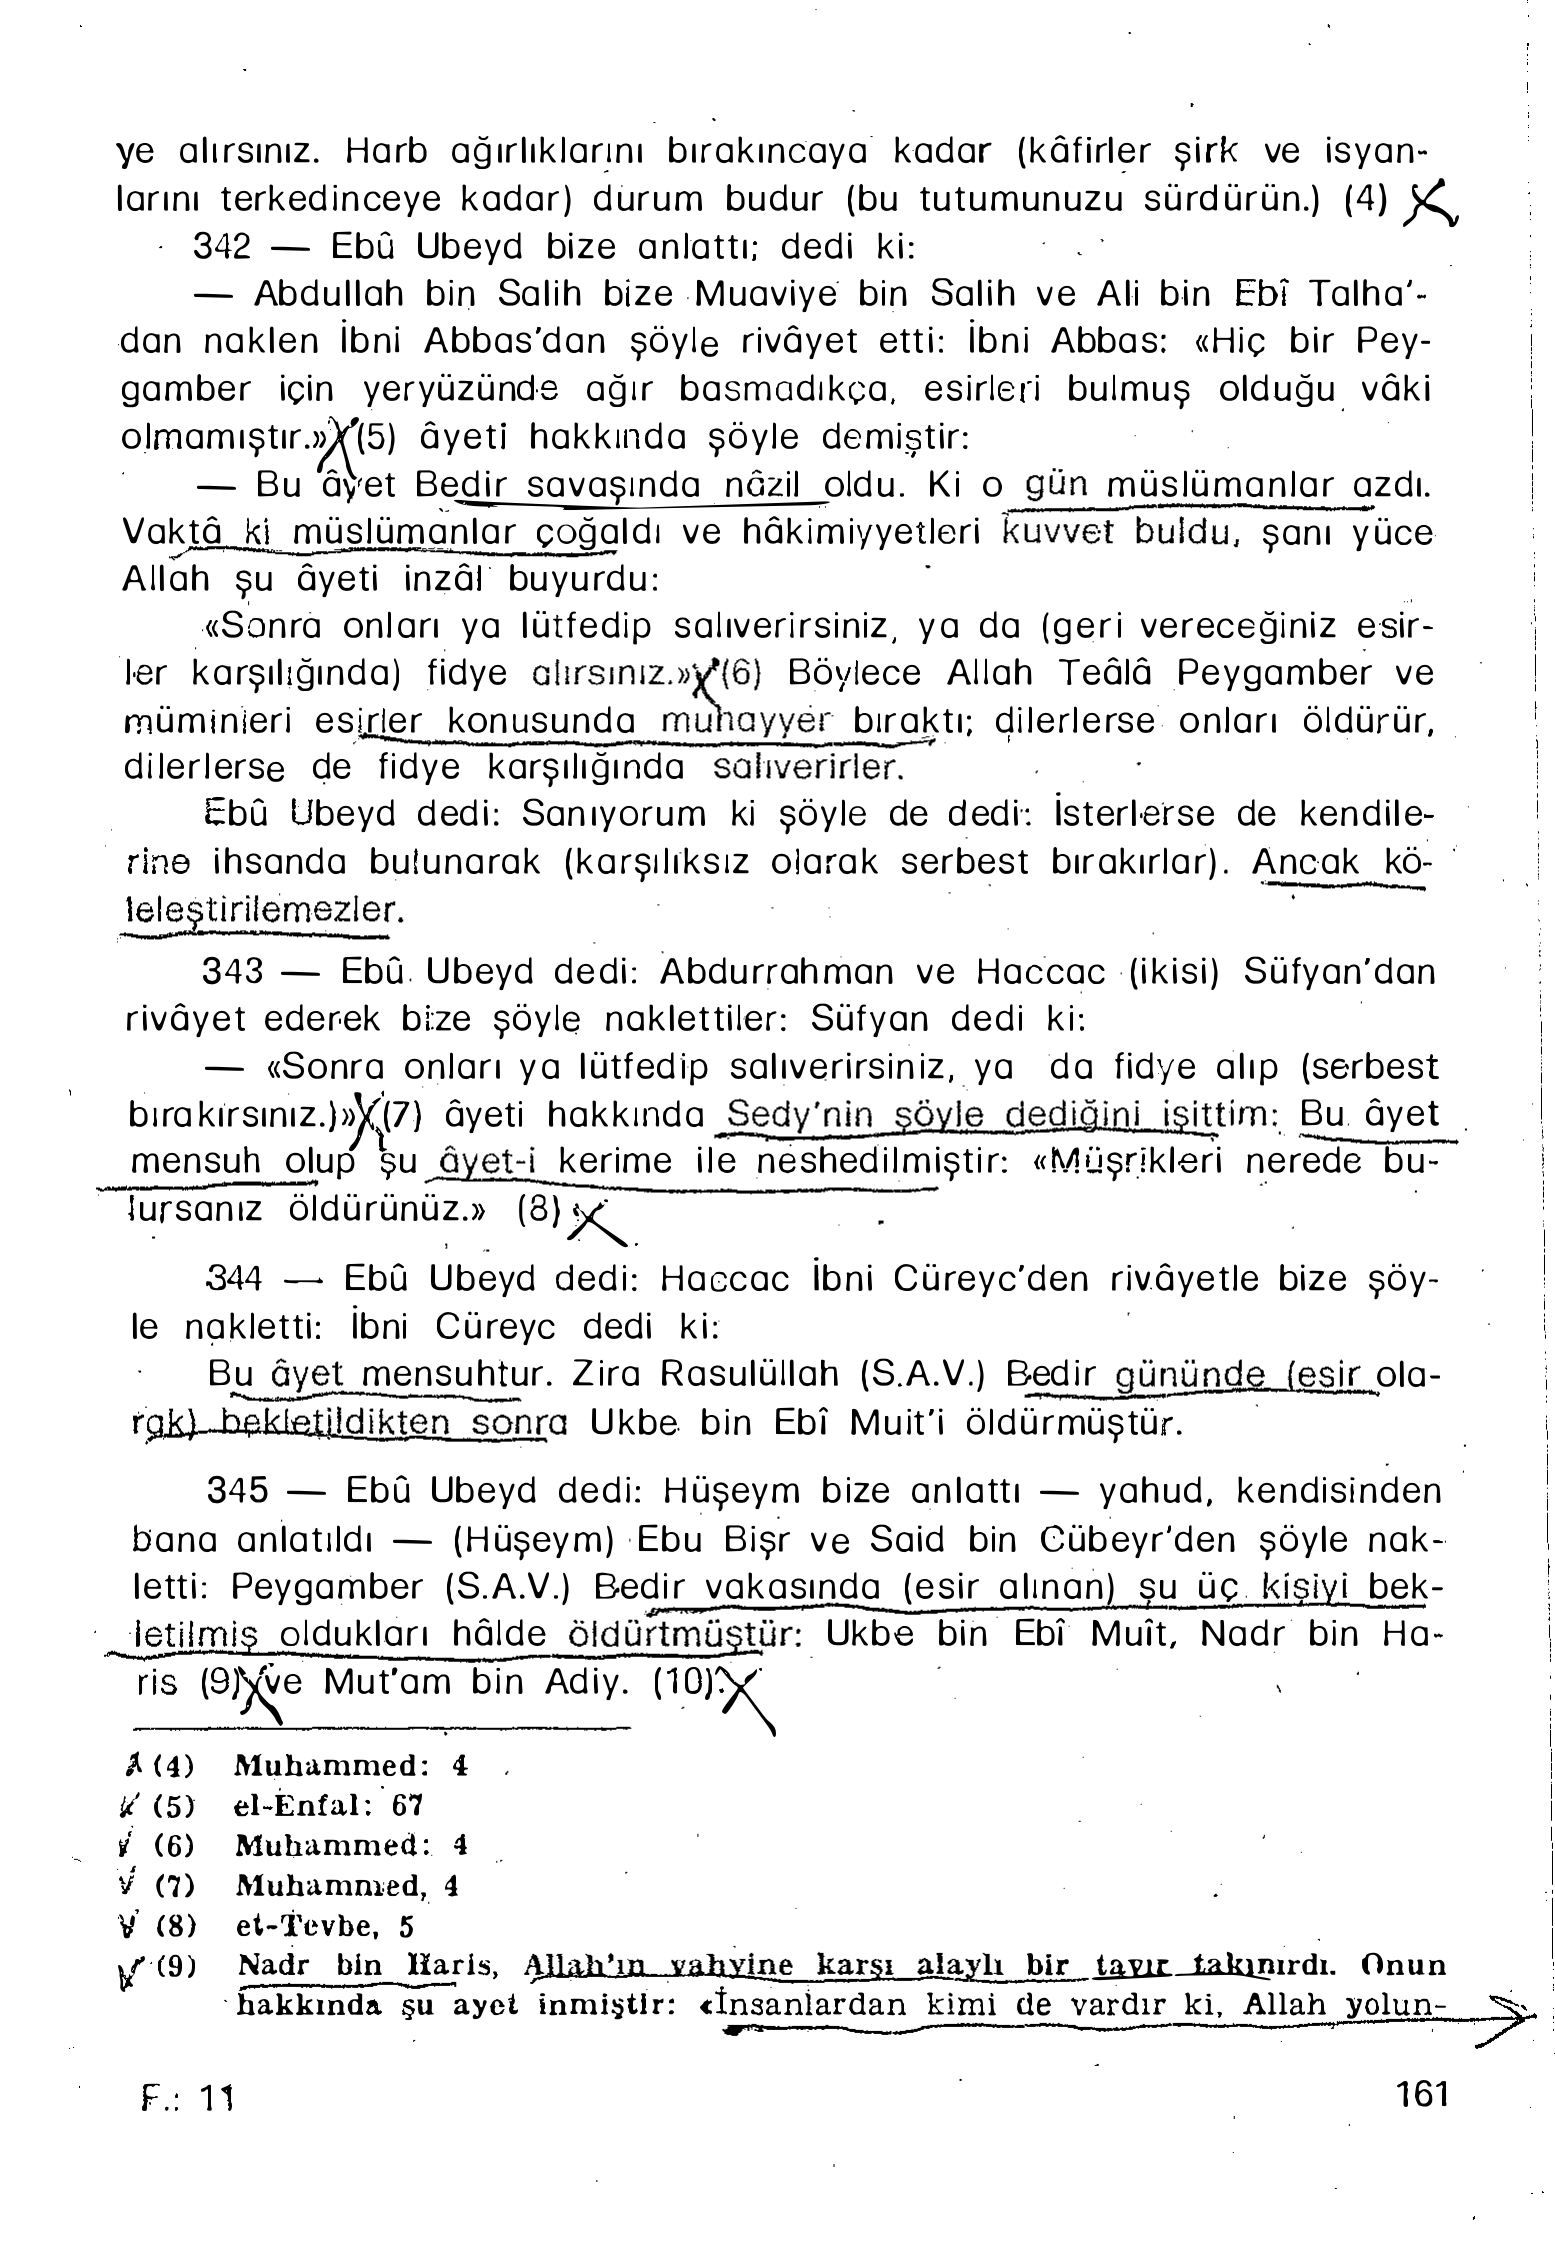 ye alırsınız. Harb ağırlıklarını bırakıncaya kadar (kâfirler şirk ve isyan-
larını terkedinceye kadar) durum budur (bu tutumunuzu sürdürün.) (4)
342 — Ebû Ubeyd bize anlattı; dedi ki:
— Abdullah bin Salih bize Muaviye bin Salih ve Ali bin Ebî Talha'-
dan naklen İbni Abbas'dan şöyle rivâyet etti: İbni Abbas: «Hiç bir Pey-
gamber için yeryüzünde ağır basmadıkça, esirleri bulmuş olduğu vâki
olmamıştır.» (5) âyeti hakkında şöyle demiştir:
— Bu âyet Bedir savaşında nâzil oldu. Ki o gün müslümanlar azdı.
Vaktâ ki müslümanlar çoğaldı ve hâkimiyyetleri kuvvet buldu, şanı yüce
Allah şu âyeti inzâl buyurdu:
«Sonra onları ya lütfedip salıverirsiniz, ya da (geri vereceğiniz esir-
ler karşılığında) fidye alırsınız.» (6) Böylece Allah Teâlâ Peygamber ve
müminleri esirler konusunda muhayyer bıraktı; dilerlerse onları öldürür,
dilerlerse de fidye karşılığında salıverirler.
Ebû Ubeyd dedi: Sanıyorum ki şöyle de dedi: İsterlerse de kendile-
rine ihsanda bulunarak (karşılıksız olarak serbest bırakırlar). Ancak kö-
leleştirilemezler.
343 — Ebû Ubeyd dedi: Abdurrahman ve Haccac (ikisi) Süfyan'dan
rivâyet ederek bize şöyle naklettiler: Süfyan dedi ki:
— «Sonra onları ya lütfedip salıverirsiniz, ya da fidye alıp (serbest
bırakırsınız.)» (7) âyeti hakkında Sedy'nin şöyle dediğini işittim: Bu âyet
mensuh olup şu âyet-i kerime ile neshedilmiştir: «Müşrikleri nerede bu-
lursanız öldürünüz.» (8)
344 — Ebû Ubeyd dedi: Haccac İbni Cüreyc'den rivâyetle bize şöy-
le nakletti: İbni Cüreyc dedi ki:
Bu âyet mensuhtur. Zira Rasulüllah (S.A.V.) Bedir gününde (esir ola-
rak) bekletildikten sonra Ukbe bin Ebî Muit'i öldürmüştür.
345 — Ebû Ubeyd dedi: Hüşeym bize anlattı — yahud, kendisinden
bana anlatıldı — (Hüşeym) Ebu Bişr ve Said bin Cübeyr'den şöyle nak-
letti: Peygamber (S.A.V.) Bedir vakasında (esir alınan) şu üç kişiyi bek-
letilmiş oldukları hâlde öldürtmüştür: Ukbe bin Ebî Muît, Nadr bin Ha-
ris (9) ve Mut'am bin Adiy. (10)
(4) Muhammed: 4
(5) el-Enfal: 67
(6) Muhammed: 4
(7) Muhammed, 4
(8) et-Tevbe, 5
(9) Nadr bin Haris, Allah'ın vahyine karşı alaylı bir tavır takınırdı. Onun
hakkında şu ayet inmiştir: «İnsanlardan kimi de vardır ki, Allah yolun-
F.: 11
161